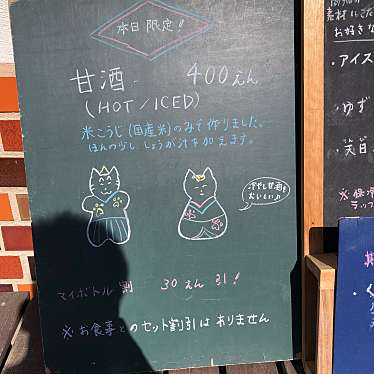 本日限定!!
甘酒 400えん
(HOT/ICED)
米こうじ(国産米)のみで作りました。
ほんの少ししょうが汁を加えます。
冷やし甘酒も
おいしい♪
マイボトル割 30えん引!
※お食事とのセット割引はありません
お好きな
・アイス
・ゆず